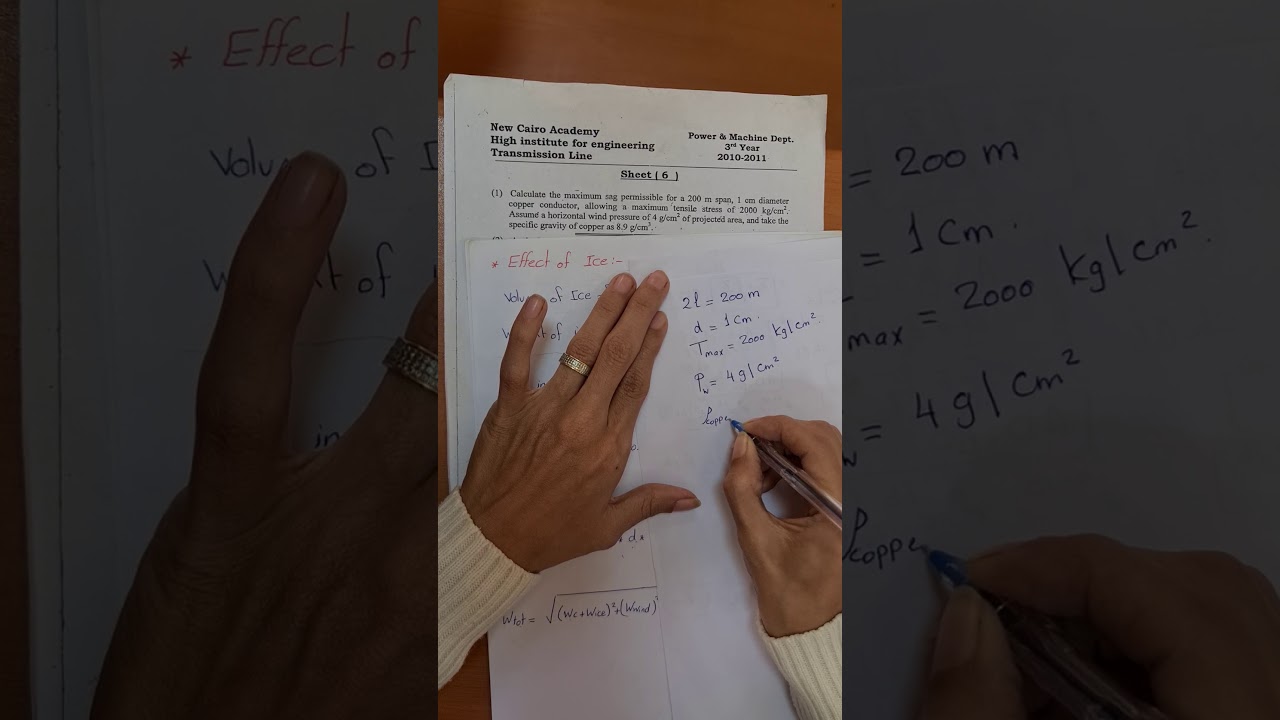 New Cairo Academy
High institute for engineering
Transmission Line
Power & Machine Dept.
3rd Year
2010-2011
Sheet ( 6 )
(1) Calculate the maximum sag permissible for a 200 m span, 1 cm diameter
copper conductor, allowing a maximum tensile stress of 2000 kg/cm².
Assume a horizontal wind pressure of 4 g/cm² of projected area, and take the
specific gravity of copper as 8.9 g/cm³.
* Effect of Ice:-
of Ice
of
in
d
Wtot = √(Wc+Wice)²+(Wwind)²
2l = 200 m
d = 1 Cm.
Tmax = 2000 kg/cm².
Pw = 4 g/cm²
ρcoppe
* Effect of
of I
of
in
= 200 m
= 1 Cm.
max = 2000 kg/cm².
w = 4 g/cm²
ρcoppe